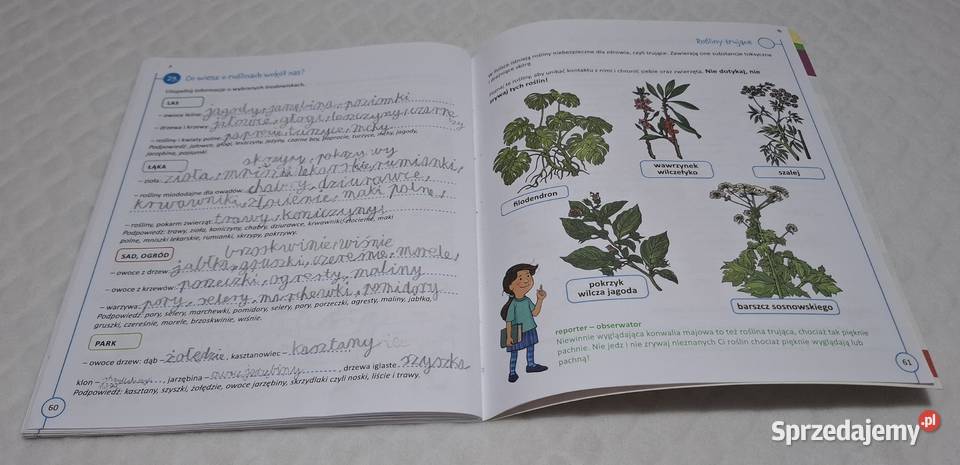 25 Co wiesz o roślinach wokół nas?
Uzupełnij informacje o wybranych środowiskach.
LAS
– owoce leśne jagody, jarzębina, poziomki
– drzewa i krzewy jałowce, głogi, leszczyny, czarne
– rośliny i kwiaty polne paprocie, turzyce, mchy
Podpowiedź: jałowce, głogi, leszczyny, jeżyny, czarne bzy, paprocie, turzyce, mchy, jagody,
jarzębina, poziomki
skrzypy, pokrzywy
ŁĄKA
– zioła zioła, mniszki lekarskie, rumianki,
– rośliny miododajne dla owadów chabry, dziurawce,
krwawniki, złocienie, maki polne,
– rośliny, pokarm zwierząt trawy, koniczyny
Podpowiedź: trawy, zioła, koniczyny, chabry, dziurawce, krwawniki, złocienie, maki
polne, mniszki lekarskie, rumianki, skrzypy, pokrzywy.
brzoskwinie, wiśnie
SAD, OGRÓD
– owoce z drzew jabłka, gruszki, czereśnie, morele,
– owoce z krzewów porzeczki, agresty, maliny
– warzywa pory, selery, marchewki, pomidory
Podpowiedź: pory, selery, marchewki, pomidory, selery, pory, porzeczki, agresty, maliny, jabłka,
gruszki, czereśnie, morele, brzoskwinie, wiśnie.
PARK
– owoce drzew: dąb – żołędzie, kasztanowiec – kasztany
klon – , jarzębina – owoc jarzębiny, drzewa iglaste szyszka
Podpowiedź: kasztany, szyszki, żołędzie, owoce jarzębiny, skrzydlaki czyli noski, liście i trawy.
60
Rośliny trujące
W Polsce istnieją rośliny niebezpieczne dla zdrowia, czyli trujące. Zawierają one substancje toksyczne
i drażniące skórę.
Poznaj te rośliny, aby unikać kontaktu z nimi i chronić siebie oraz zwierzęta. Nie dotykaj, nie
zrywaj tych roślin!
filodendron
wawrzynek
wilczełyko
szalej
pokrzyk
wilcza jagoda
barszcz sosnowskiego
reporter – obserwator
Niewinnie wyglądająca konwalia majowa to też roślina trująca, chociaż tak pięknie
pachnie. Nie jedz i nie zrywaj nieznanych Ci roślin chociaż pięknie wyglądają lub
pachną!
61
Sprzedajemy.pl